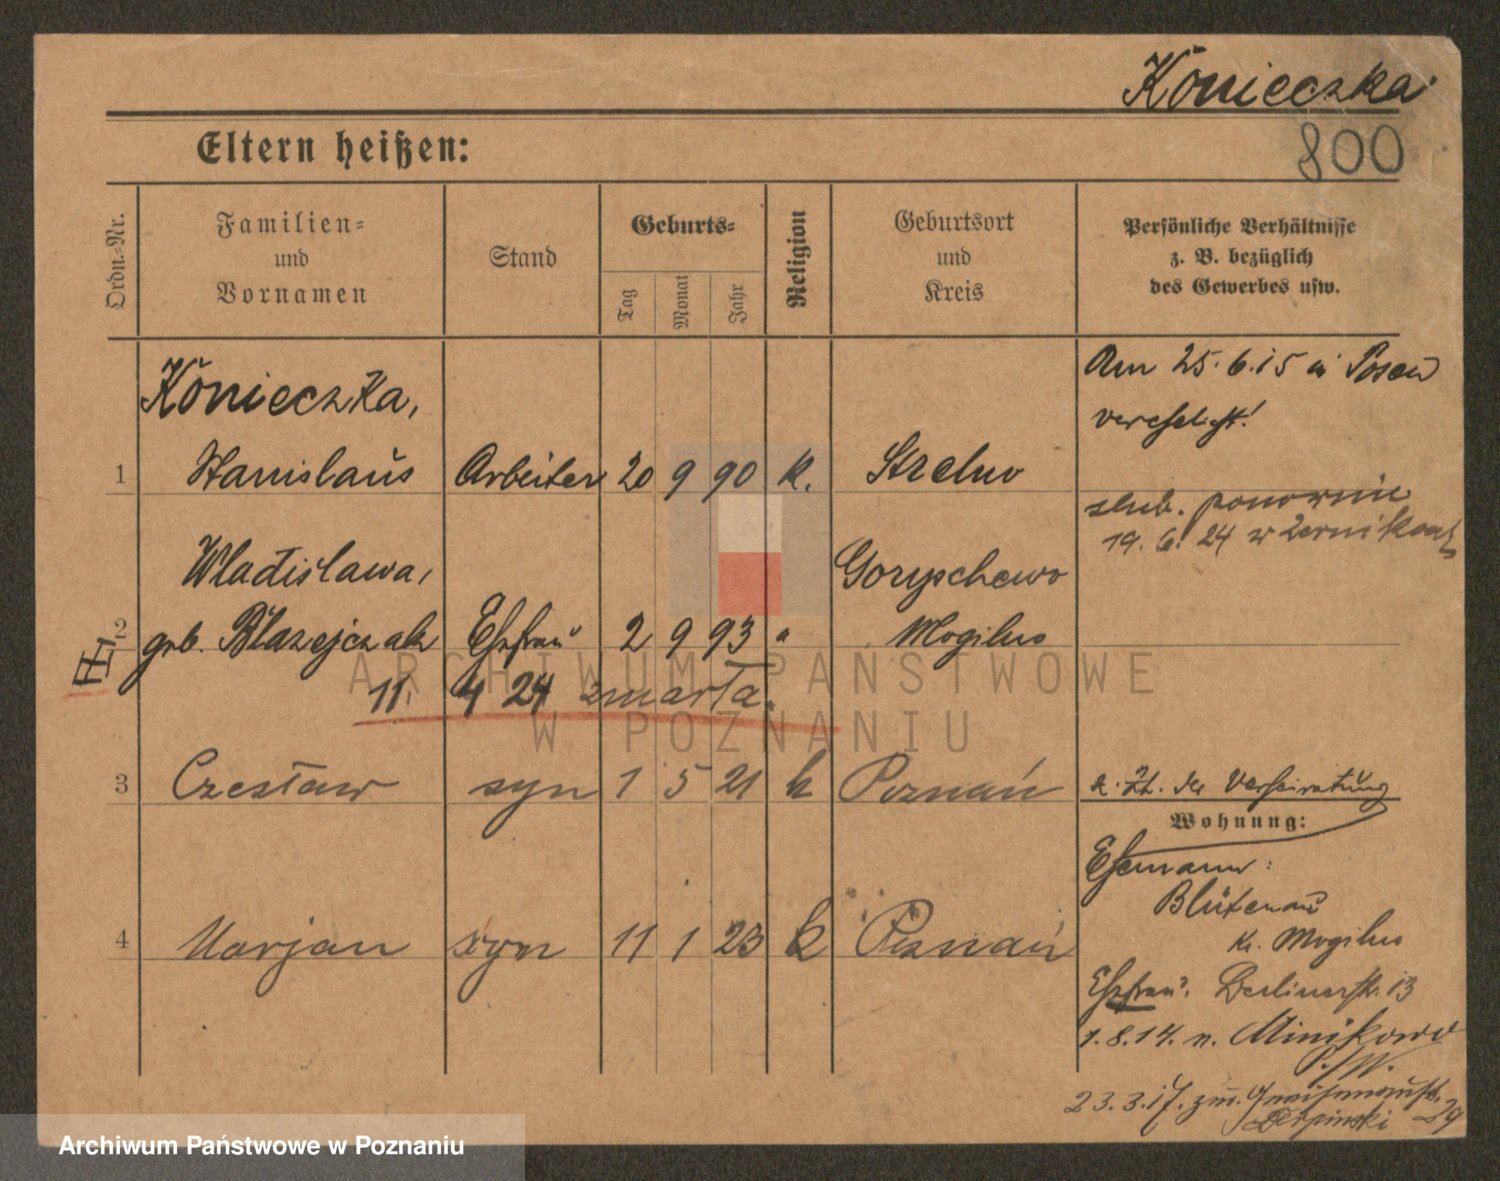 Konieczka
800
Eltern heißen:
Ordn.-Nr.
Familien-
und
Vornamen
Stand
Geburts-
Tag
Monat
Jahr
Religion
Geburtsort
und
Kreis
Persönliche Verhältnisse
z. B. bezüglich
des Gewerbes usw.
Konieczka,
1 Stanislaus Arbeiter 20 9 90 k. Strelno
Am 25.6.15 in Posen
verehelicht!
ślub. ponownie
19. 6. 24 w Żernikach
Wladislawa,
2 geb. Blazejczak Ehefrau 2 9 93 "
Goryschewo
Mogilno
11. 4 24 zmarła.
3 Czesław syn 1 5 21 k Poznań
z. Zt. der Verheiratung
Wohnung:
Ehemann:
Blütenau
Kr. Mogilno
4 Marjan syn 11 1 23 k Poznań
Ehefrau: Berlinerstr. 13
1.8.14. n. Minikowo
P./W.
23.3.17. zur. Gneisenaustr. 29
ARCHIWUM PAŃSTWOWE
W POZNANIU
Archiwum Państwowe w Poznaniu